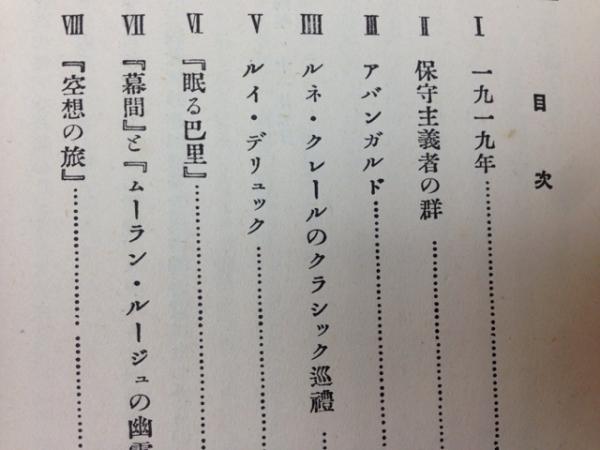 目次
Ⅰ 一九一九年
Ⅱ 保守主義者の群
Ⅲ アバンガルド
IIII ルネ・クレールのクラシック巡禮
Ⅴ ルイ・デリュック
Ⅵ 『眠る巴里』
Ⅶ 『幕間』と『ムーラン・ルージュの幽
Ⅷ 『空想の旅』